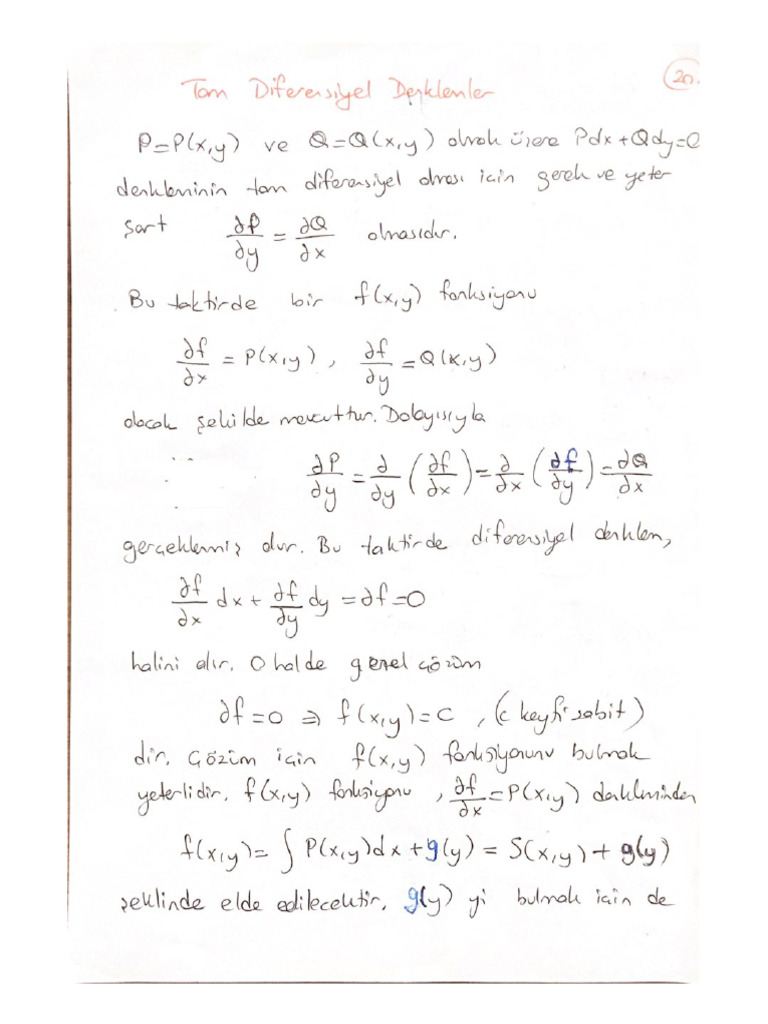 20.
Tam Diferensiyel Denklemler
P=P(x,y) ve Q=Q(x,y) olmak üzere Pdx+Qdy=0
denkleminin tam diferensiyel olması için gerek ve yeter
şart ∂P/∂y = ∂Q/∂x olmasıdır.
Bu taktirde bir f(x,y) fonksiyonu
∂f/∂x = P(x,y) , ∂f/∂y = Q(x,y)
olacak şekilde mevcuttur. Dolayısıyla
∂P/∂y = ∂/∂y (∂f/∂x) = ∂/∂x (∂f/∂y) = ∂Q/∂x
gerçeklenmiş olur. Bu taktirde diferensiyel denklem,
∂f/∂x dx + ∂f/∂y dy = ∂f = 0
halini alır. O halde genel çözüm
∂f=0 ⇒ f(x,y)=C , (c keyfi sabit)
dir. Çözüm için f(x,y) fonksiyonunu bulmak
yeterlidir. f(x,y) fonksiyonu , ∂f/∂x = P(x,y) denkleminden
f(x,y)= ∫ P(x,y)dx + g(y) = S(x,y) + g(y)
şeklinde elde edilecektir. g(y) yi bulmak için de